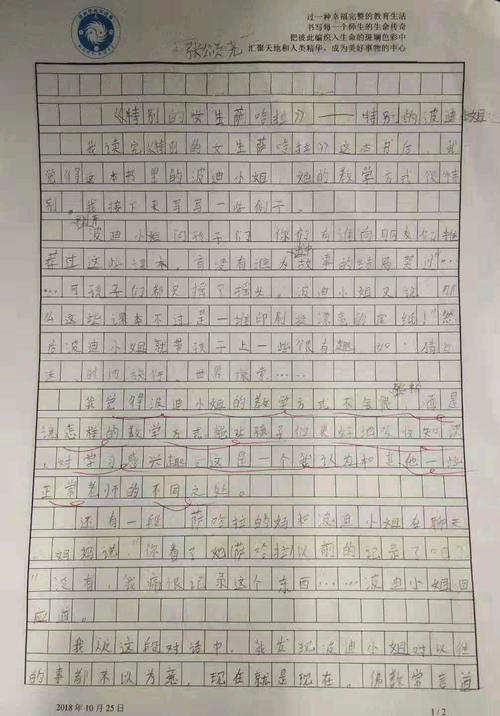 过一种幸福完整的教育生活
书写每一个师生的生命传奇
把彼此编织入生命的斑斓色彩中
汇聚天地和人类精华，成为美好事物的中心
张颂尧
《特别的女生萨哈拉》——特别的波迪小姐
我读完《特别的女生萨哈拉》这本书后，我
觉得这本书里的波迪小姐 她的教学方式很特
别。我接下来写写一些例子。
波迪小姐问孩子们 你们有谁向朋友们推
荐过这些课本，有没有谁为故事的结局哭过…
…可孩子们都只摇了摇头。波迪小姐又说 那
么这些课本不过是一堆印刷 漂亮的 纸！然
后波迪小姐就带孩子上一些很有趣 如：
时间 。世界探索……
我觉得波迪小姐的教学方式不会很 而是
说怎样的教学方式能让孩子们更好地吸收知识
，对学习感兴趣。这是一个我认为和其他一些
正常老师的不同之处。
还有一段 萨哈拉的妈和波迪小姐在聊天
妈妈说“你看了她萨哈拉以前的记录了吗？”
“没有，我痛恨记录这个东西……波迪小姐回
应道。
我从这段对话中，我发现波迪小姐对以往
的事都不以为意，现在就是现在。佛教常言道
2018年10月25日
1/2